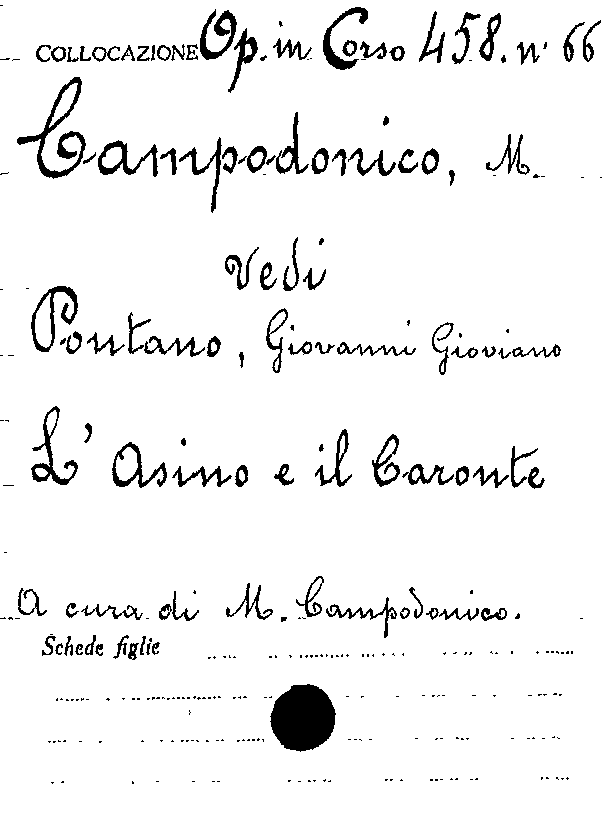 COLLOCAZIONE Op. in Corso 458. n° 66
Campodonico, M.
Vedi
Pontano, Giovanni Gioviano
L' Asino e il Caronte
A cura di M. Campodonico.
Schede figlie